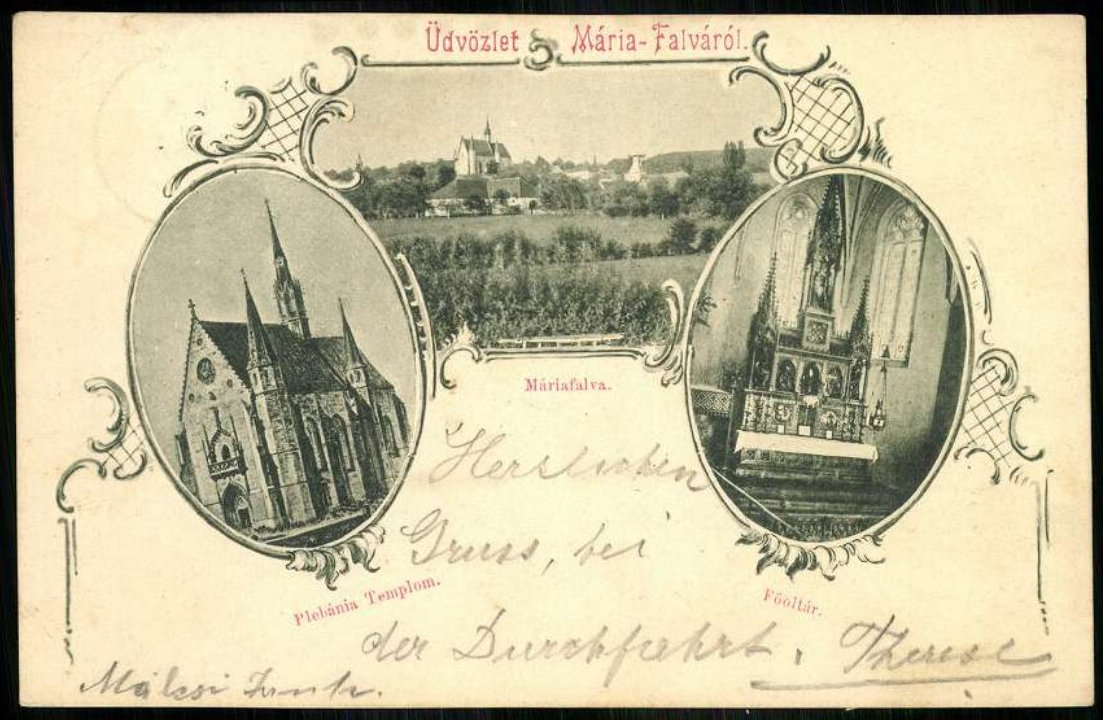 Üdvözlet Mária-Falváról.
Máriafalva.
Plebánia Templom.
Főoltár.
Herzlichen
Gruss, bei
der Durchfahrt, Therese
Málcsi